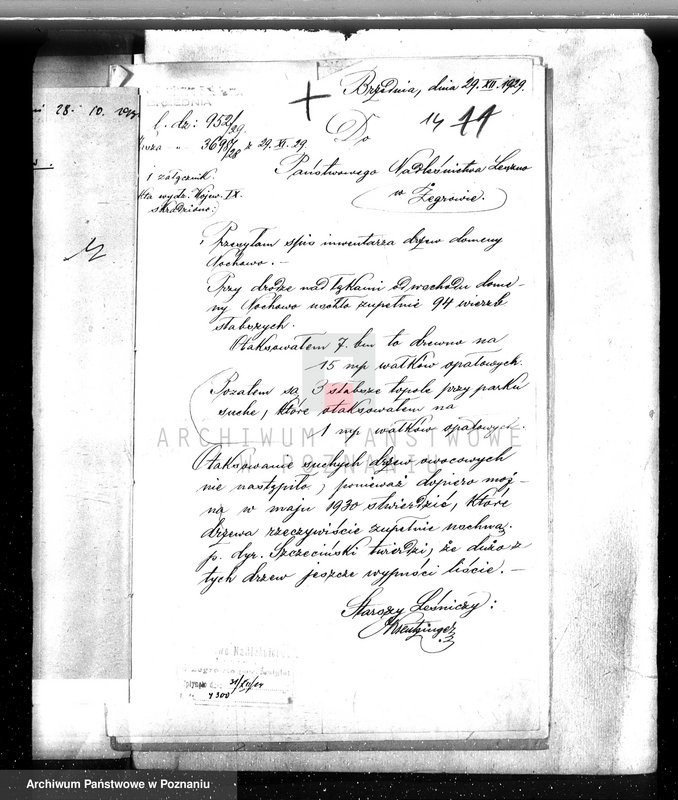 28. 10.
Brzednia, dnia 29. XII. 1929.
l. dz: 952/29.
3698/28 z 29. XI. 29
Do
14 44
Państwowego Nadleśnictwa Leszno
w Żegrowie.
1 załącznik.
wydz. Wojew. IX.
skradziono:
Przesyłam spis inwentarza drzew domeny
Nochowo. –
Przy drodze nad łąkami od wschodu dome-
ny Nochowo uschło zupełnie 94 wierzb
słabszych.
Otaksowałem 7. bm to drewno na
15 mp wałków opałowych.
Pozatem są 3 słabsze topole przy parku
suche, które otaksowałem na
1 mp wałków opałowych.
Otaksowanie suchych drzew owocowych
nie nastąpiło, ponieważ dopiero moż-
na w maju 1930 stwierdzić, które
drzewa rzeczywiście zupełnie uschną.
p. dyr. Szczeciński twierdzi, że dużo z
tych drzew jeszcze wypuści liście. –
Starszy Leśniczy:
31/XII
4300
ARCHIWUM PAŃSTWOWE
W POZNANIU
Archiwum Państwowe w Poznaniu